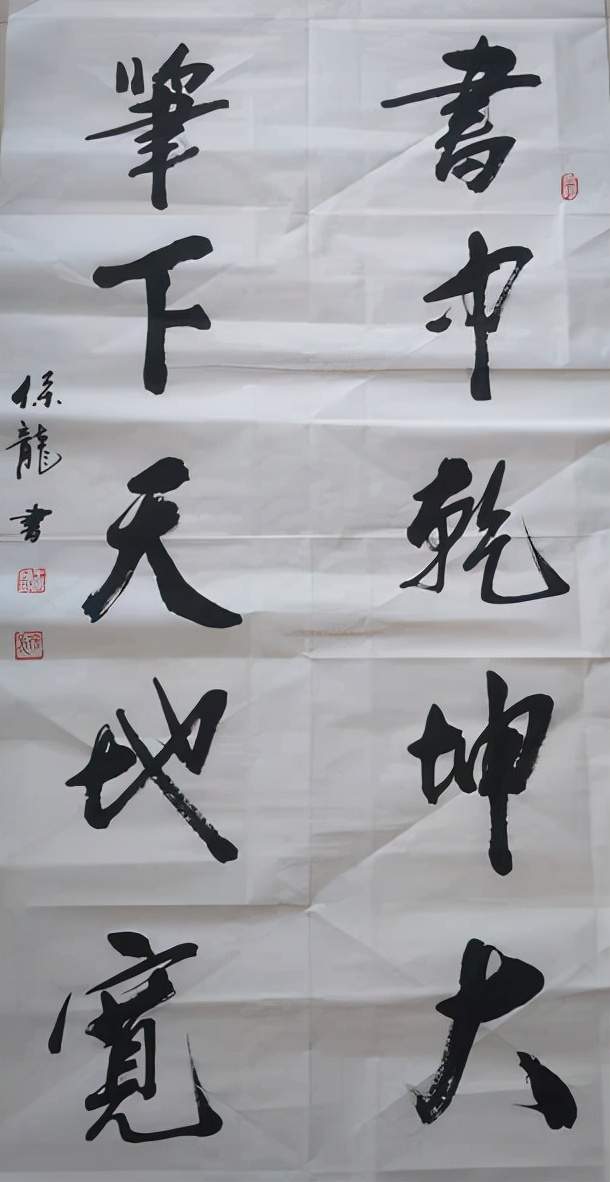 書中乾坤大
筆下天地寬
保龍書